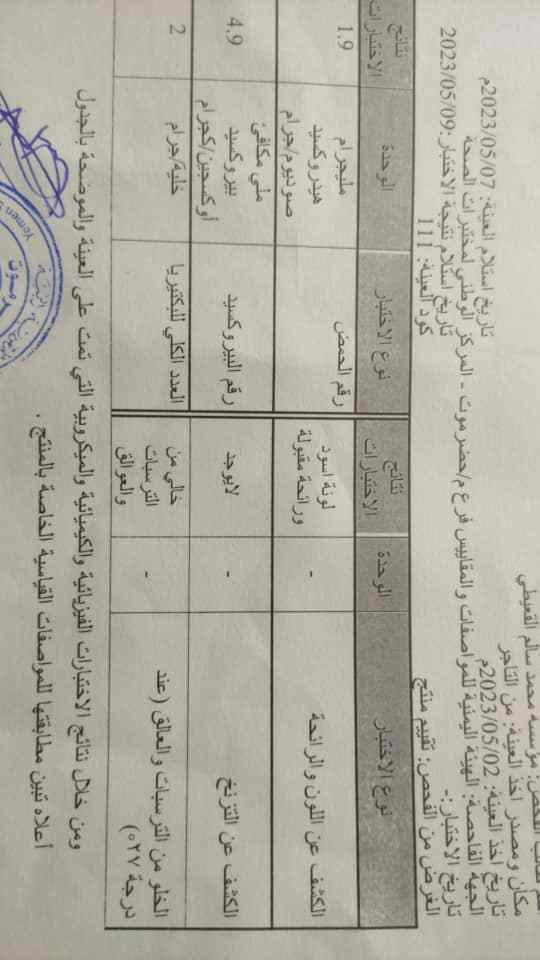 طالب الفحص: مؤسسه محمد سالم القعيطي
مكان ومصدر اخذ العينة: من التاجر
تاريخ اخذ العينة: 2023/05/02م
تاريخ استلام العينة: 2023/05/07م
الجهة الفاحصة: الهيئة اليمنية للمواصفات والمقاييس فرع م/حضرموت - المركز الوطني لمختبرات الصحة
تاريخ الاختبار:-
تاريخ استلام نتيجة الاختبار:2023/05/09
الغرض من الفحص: تقييم منتج
كود العينة: 111
نوع الاختبار
الوحدة
نتائج الاختبارات
نوع الاختبار
الوحدة
نتائج الاختبارات
الكشف عن اللون والرائحة
-
لونة اسود
ورائحة مقبولة
رقم الحمض
مليجرام
هيدروكسيد
صوديوم/جرام
1.9
الكشف عن التزنخ
-
لايوجد
رقم البيروكسيد
ملي مكافئ
بيروكسيد
أوكسجين/كجرام
4.9
الخلو من الترسبات والعالق (عند
درجة ٢٧°)
-
خالي من
الترسبات
والعوالق
العدد الكلي للبكتيريا
خلية/جرام
2
ومن خلال نتائج الاختبارات الفيزيائية والكيميائية والميكروبية التي تمت على العينة والموضحة بالجدول
أعلاه تبين مطابقتها للمواصفات القياسية الخاصة بالمنتج .
Yemen